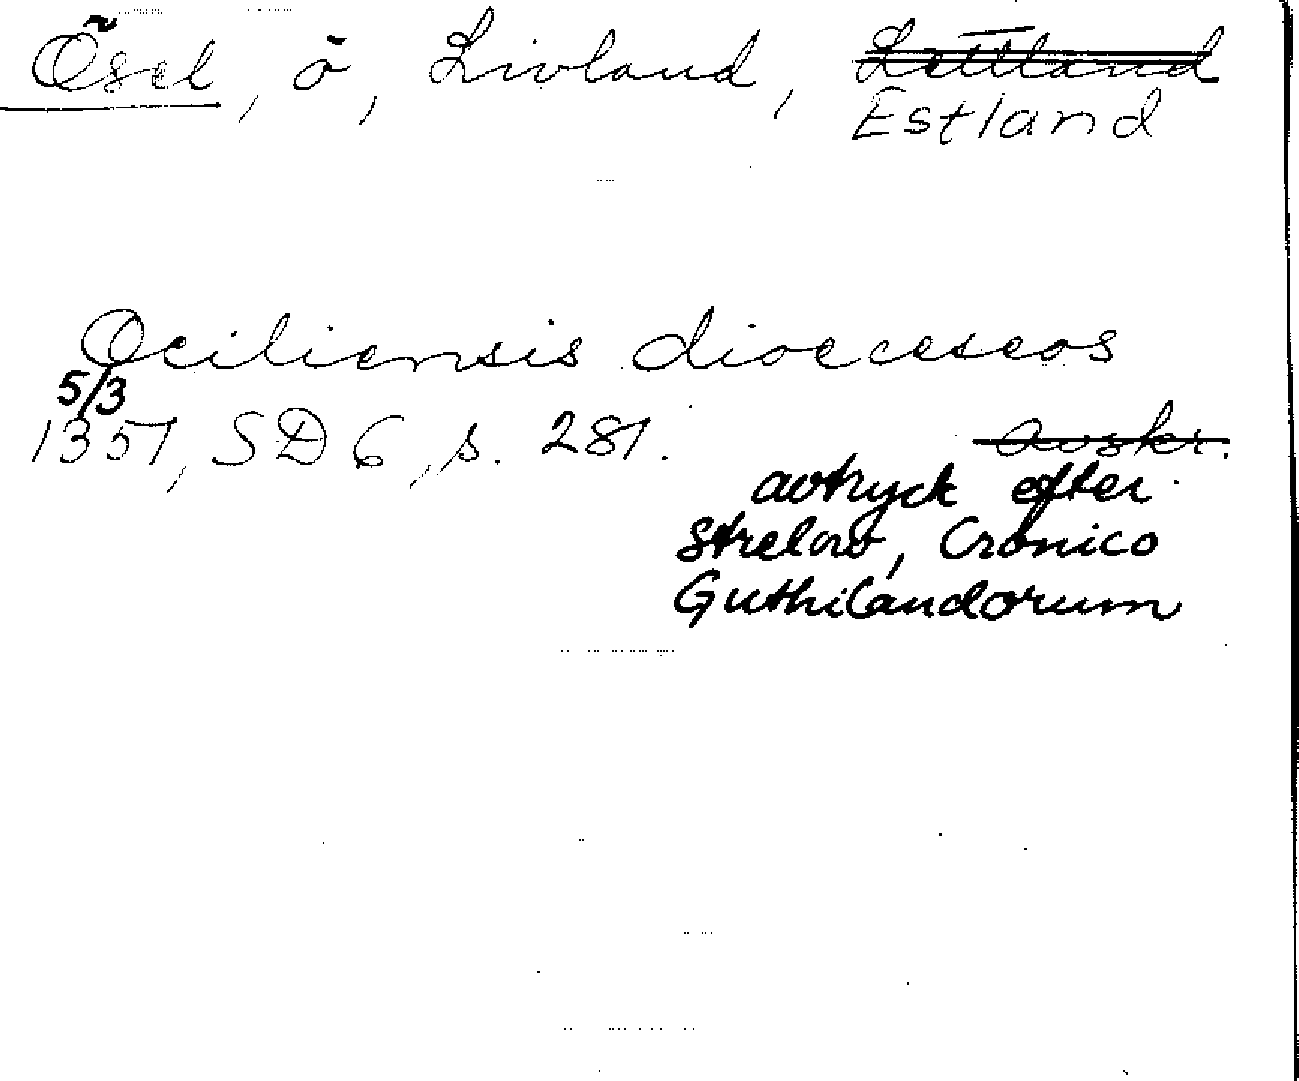 Ösel, ö, Livland, Lettland
Estland
Ociliensis dioeceseos
5/3
1351, SD 6, s. 281. avskr.
avtryck efter
Strelow, Cronico
Guthilandorum